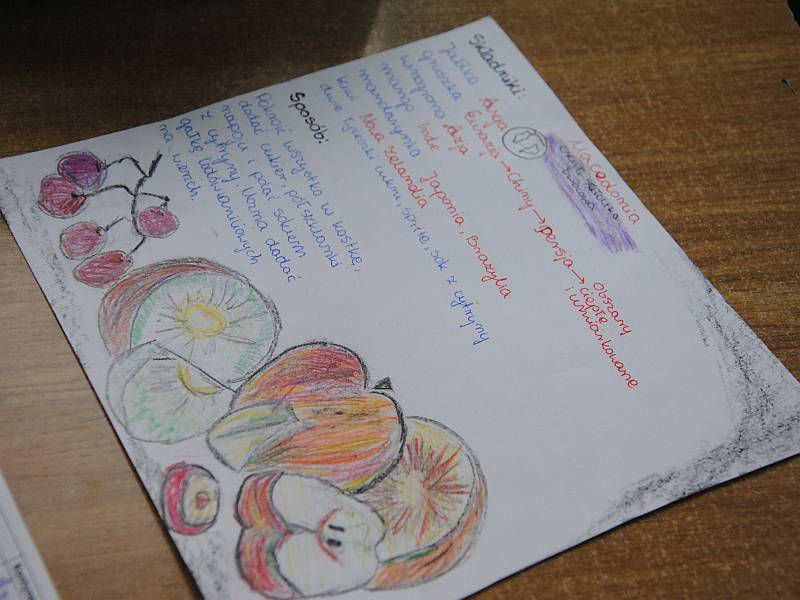 Macedonia
czyli sałatka
owocowa
Składniki:
Jabłko Azja
gruszka Eurazja → Chiny → Persja → Obszary ciepłe i umiarkowane
winogrono Azja
mango Indie
mandarynka Japonia, Brazylia
kiwi Nowa Zelandia
dwie łyżeczki cukru, sprite, sok z cytryny
Sposób:
Pokroić wszystko w kostkę,
dodać cukier, pół szklanki
napoju i polać sokiem
z cytryny. Można dodać
gałkę lodów waniliowych
na wierzch.